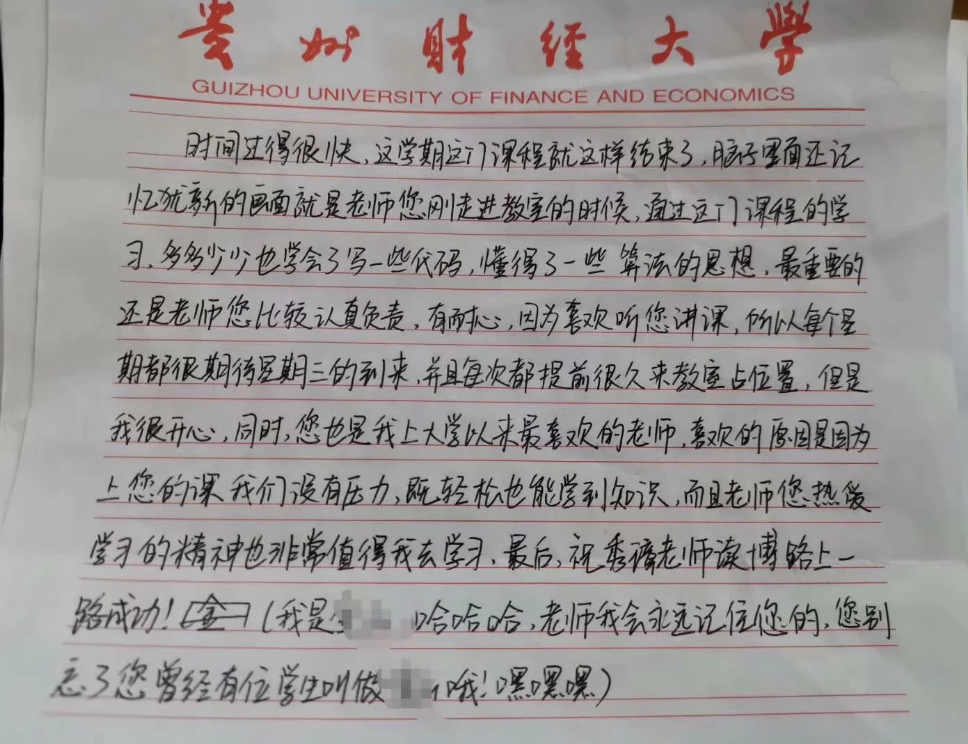 贵州财经大学
GUIZHOU UNIVERSITY OF FINANCE AND ECONOMICS
时间过得很快，这学期这门课程就这样结束了，脑子里面还记
忆犹新的画面就是老师您刚走进教室的时候，通过这门课程的学
习，多多少少也学会了写一些代码，懂得了一些算法的思想，最重要的
还是老师您比较认真负责，有耐心，因为喜欢听您讲课，所以每个星
期都很期待星期三的到来，并且每次都提前很久来教室占位置，但是
我很开心，同时，您也是我上大学以来最喜欢的老师，喜欢的原因是因为
上您的课我们没有压力，既轻松也能学到知识，而且老师您热爱
学习的精神也非常值得我去学习，最后，祝秀老师读博路上一
路成功！（我是 哈哈哈，老师我会永远记住您的，您别
忘了您曾经有位学生叫做 哦！嘿嘿嘿）